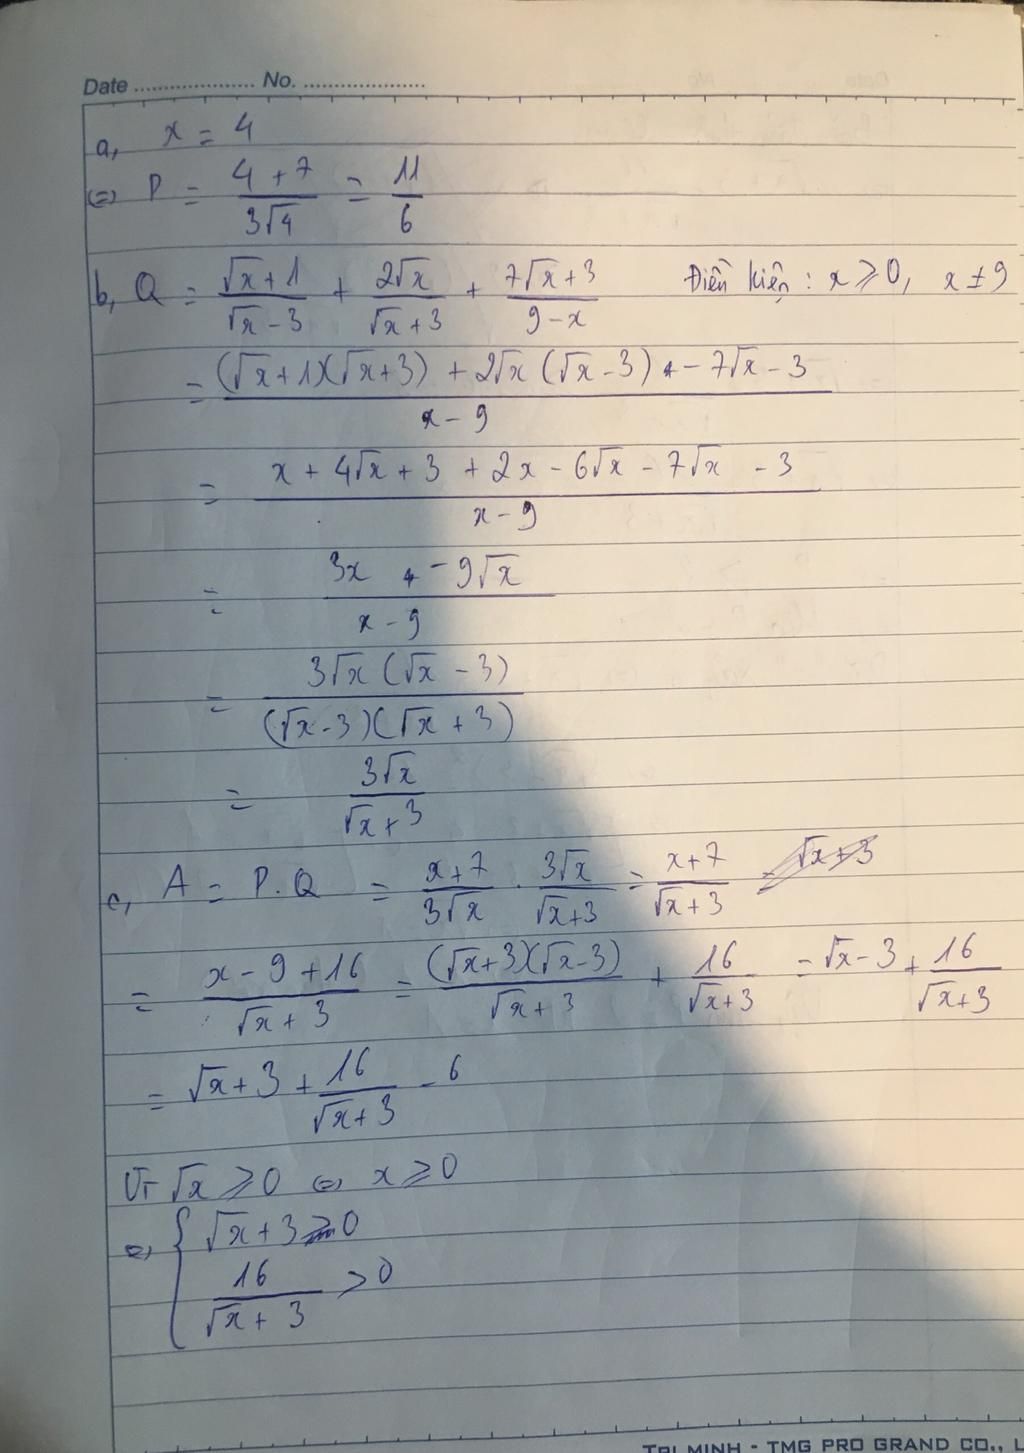 Date .................... No. ....................
a, x = 4
(=) P = (4 + 7)/(3√4) = 11/6
b, Q = (√x + 1)/(√x - 3) + (2√x)/(√x + 3) + (7√x + 3)/(9 - x) Điều kiện : x ⩾ 0, x ± 9
= ((√x + 1)(√x + 3) + 2√x (√x - 3) + - 7√x - 3)/(x - 9)
= (x + 4√x + 3 + 2x - 6√x - 7√x - 3)/(x - 9)
= (3x - 9√x)/(x - 9)
= (3√x (√x - 3))/((√x - 3)(√x + 3))
= (3√x)/(√x + 3)
c, A = P.Q = (x + 7)/(3√x) . (3√x)/(√x + 3) = (x + 7)/(√x + 3)
= (x - 9 + 16)/(√x + 3) = ((√x + 3)(√x - 3))/(√x + 3) + 16/(√x + 3) = √x - 3 + 16/(√x + 3)
= √x + 3 + 16/(√x + 3) - 6
Vì √x ⩾ 0 (=) x ⩾ 0
(=) { √x + 3 > 0
16/(√x + 3) > 0
TRI MINH - TMG PRO GRAND CO., L